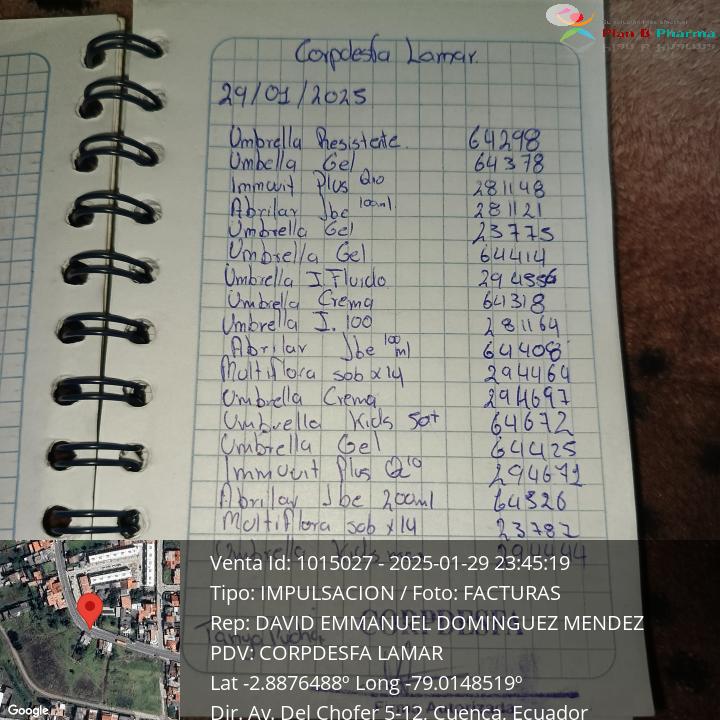 Plan B Pharma
Corpdesfa Lamar.
29/01/2025
Umbrella Resistente. 64298
Umbella Gel 64378
Immuvit Plus Q10 281148
Abrilar Jbe 100ml. 281121
Umbrella Gel 23775
Umbrella Gel 64414
Umbrella I. Fluido 294556
Umbrella Crema 64318
Umbrella I. 100 281164
Abrilar Jbe 100 ml 64408
Multiflora sob x14 294464
Umbrella Crema 294697
Umbrella Kids 50+ 64672
Umbrella Gel 64425
Immuvit Plus Q10 294671
Abrilar Jbe 200ml 64326
Multiflora sob x14 23782
Umbrella Kids 294444
Venta Id: 1015027 - 2025-01-29 23:45:19
Tipo: IMPULSACION / Foto: FACTURAS
Rep: DAVID EMMANUEL DOMINGUEZ MENDEZ
CORPDESFA
PDV: CORPDESFA LAMAR
Lat -2.8876488º Long -79.0148519º
Dir. Av. Del Chofer 5-12, Cuenca, Ecuador
Google